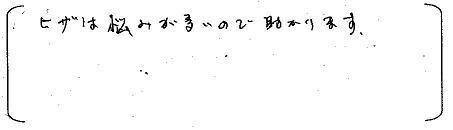 ヒザは悩みが多いので助かります。